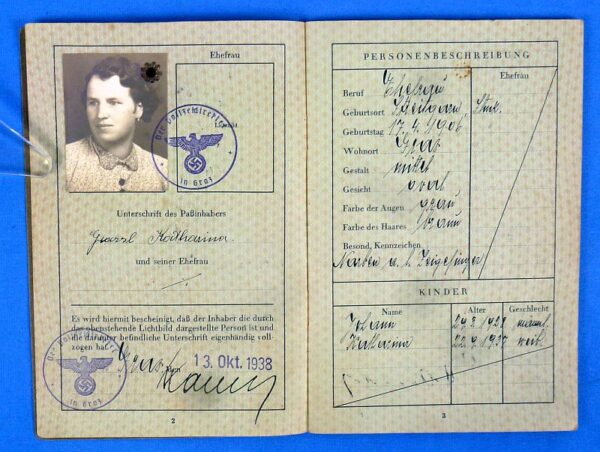 Ehefrau
Der Polizeidirektor
in Graz
Unterschrift des Paßinhabers
Grazzl Katharina.
und seiner Ehefrau
Es wird hiermit bescheinigt, daß der Inhaber die durch
das obenstehende Lichtbild dargestellte Person ist und
die darunter befindliche Unterschrift eigenhändig voll-
zogen hat.
Graz, 13. Okt. 1938
in Graz
2
PERSONENBESCHREIBUNG
Ehefrau
Beruf Ehefrau
Geburtsort
Geburtstag 17. 4. 1906
Wohnort Graz
Gestalt mittel
Gesicht oval
Farbe der Augen grau
Farbe des Haares braun
Besond. Kennzeichen
Narben a. l. Zeigefinger
KINDER
Name Alter Geschlecht
Johann männl.
Katharina 1937 weibl.
3